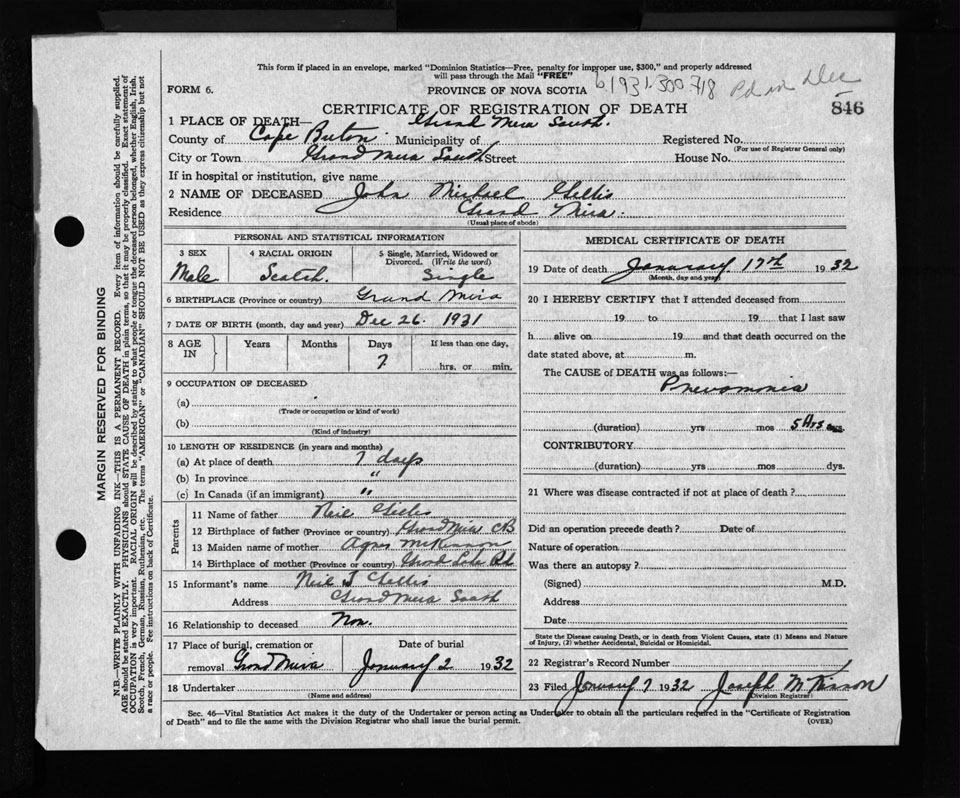 This form if placed in an envelope, marked "Dominion Statistics—Free, penalty for improper use, $300," and properly addressed
will pass through the Mail "FREE"
FORM 6.
PROVINCE OF NOVA SCOTIA
b 1931.300718
Pd in Dec
CERTIFICATE OF REGISTRATION OF DEATH
846
1 PLACE OF DEATH— Grand Mira South.
County of Cape Breton. Municipality of
Registered No.
(For use of Registrar General only)
City or Town Grand Mira South Street
House No.
If in hospital or institution, give name
2 NAME OF DECEASED John Michael Gillis
Residence Grand Mira.
(Usual place of abode)
PERSONAL AND STATISTICAL INFORMATION
3 SEX
Male
4 RACIAL ORIGIN
Scotch.
5 Single, Married, Widowed or
Divorced. (Write the word)
Single
6 BIRTHPLACE (Province or country) Grand Mira
7 DATE OF BIRTH (month, day and year) Dec 26. 1931
8 AGE
IN
Years
Months
Days
7
If less than one day,
hrs. or min.
9 OCCUPATION OF DECEASED
(a)
(Trade or occupation or kind of work)
(b)
(Kind of industry)
10 LENGTH OF RESIDENCE (in years and months)
(a) At place of death 7 days
(b) In province "
(c) In Canada (if an immigrant) "
Parents
11 Name of father Neil Gillis
12 Birthplace of father (Province or country) Grand Mira CB
13 Maiden name of mother Agnes McKinnon
14 Birthplace of mother (Province or country) Grand
15 Informant's name Neil J Gillis
Address Grand Mira South
16 Relationship to deceased Non.
17 Place of burial, cremation or
removal Grand Mira
Date of burial
January 2 1932
18 Undertaker
(Name and address)
MEDICAL CERTIFICATE OF DEATH
19 Date of death January 17th 1932
(Month, day and year)
20 I HEREBY CERTIFY that I attended deceased from
19 to 19 that I last saw
h alive on 19 and that death occurred on the
date stated above, at m.
The CAUSE of DEATH was as follows:—
Pnevomonia
(duration) yrs mos 5 hrs
CONTRIBUTORY
(duration) yrs mos dys.
21 Where was disease contracted if not at place of death ?
Did an operation precede death ? Date of
Nature of operation
Was there an autopsy ?
(Signed) M.D.
Address
Date
State the Disease causing Death, or in death from Violent Causes, state (1) Means and Nature
of Injury, (2) whether Accidental, Suicidal or Homicidal.
22 Registrar's Record Number
23 Filed January 7 1932 Joseph McKinnon
(Division Registrar)
Sec. 46—Vital Statistics Act makes it the duty of the Undertaker or person acting as Undertaker to obtain all the particulars required in the "Certificate of Registration
of Death" and to file the same with the Division Registrar who shall issue the burial permit.
(OVER)
MARGIN RESERVED FOR BINDING
N.B.—WRITE PLAINLY WITH UNFADING INK—THIS IS A PERMANENT RECORD. Every item of information should be carefully supplied.
AGE should be stated EXACTLY. PHYSICIANS should STATE CAUSE OF DEATH in plain terms, so that it may be properly classified. Exact statement of
OCCUPATION is very important. RACIAL ORIGIN will be described by stating to what people or tongue the deceased person belonged, whether English, Irish,
Scotch, French, German, Russian, Ruthenian, etc. The terms "AMERICAN" or "CANADIAN" SHOULD NOT BE USED as they express citizenship but not
a race or people. See instructions on back of Certificate.